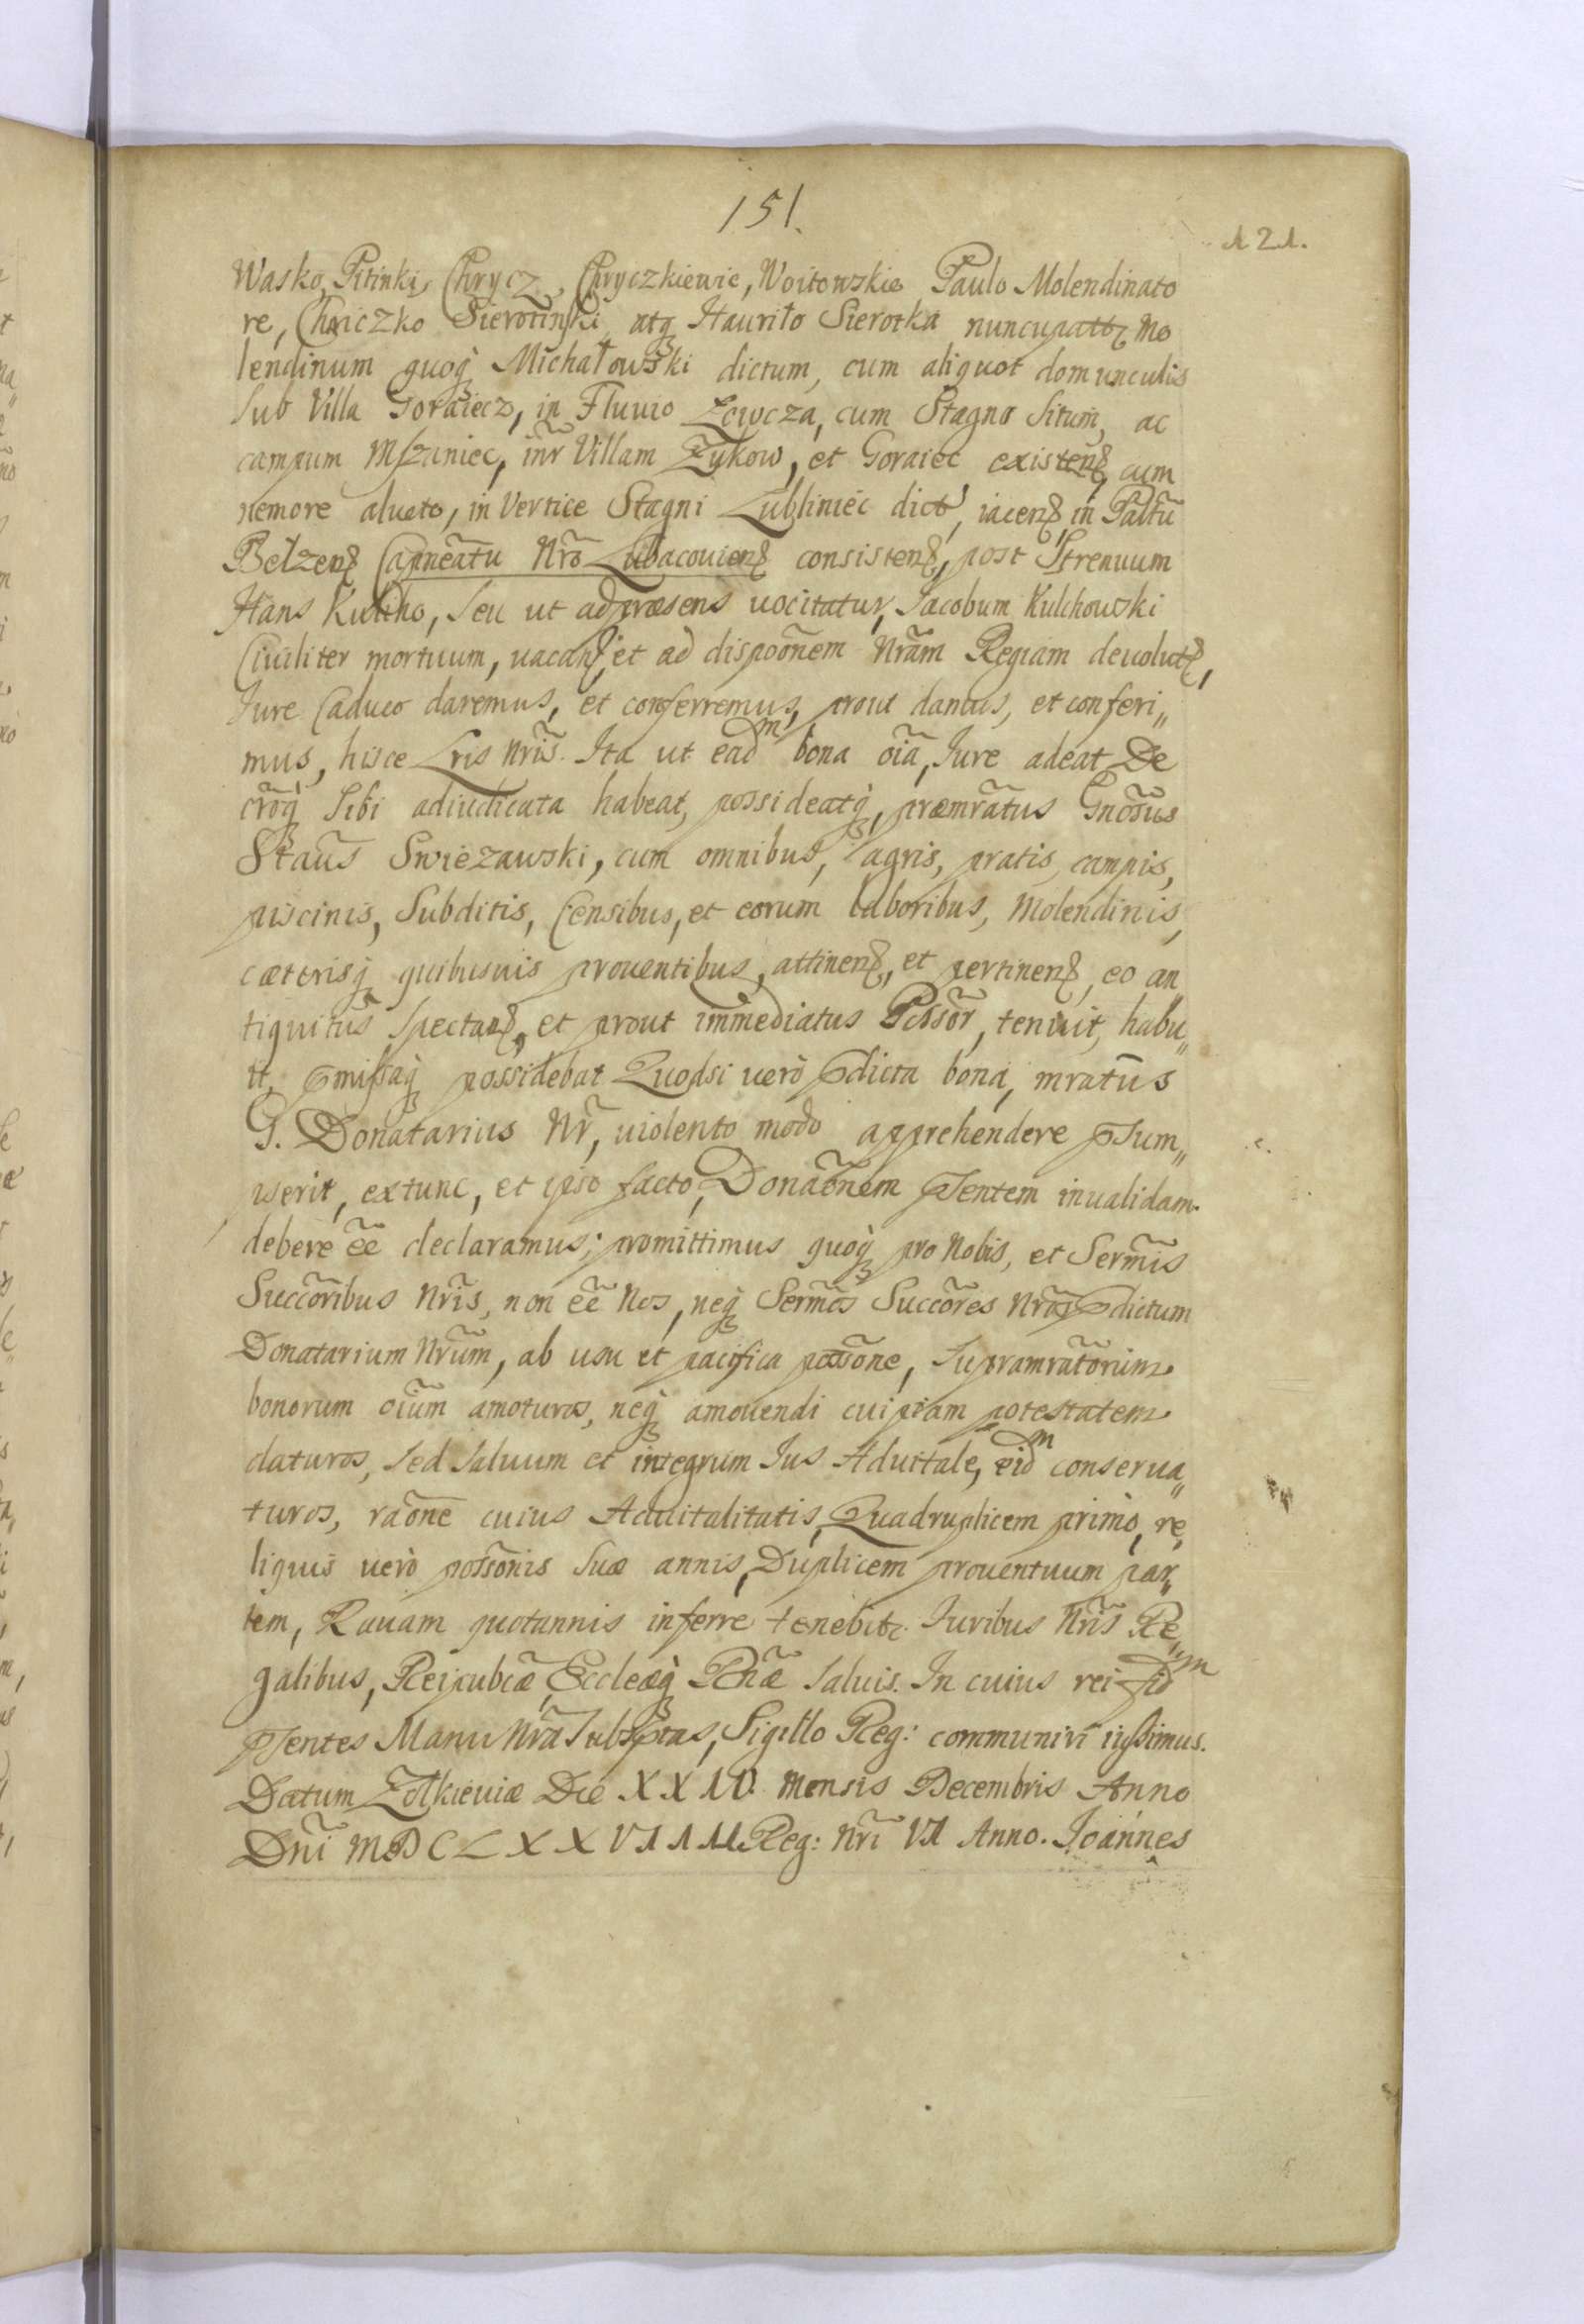 151.
121.
Wasko Pitinki, Chrycz, Chryczkiewic, Woitowskie Paulo Molendinato
re, Chriczko Sierotinski atq Hauriło Sierotka nuncupatt Mo
lendinum quoq̀ Michałowski dictum, cum aliquot domunculis
sub Villa Goraiecz, in Fluvio Łowcza, cum Stagno situm, ac
campum Mszaniec, inr̃ Villam Zykow, et Goraiec existen, cum
nemore alueto, in Vertice Stagni Lubliniec dict, iacen, in Pałtũ
Belzen Capneãtu Nrõ Lubacouien consisten, post Strenuum
Hans Kulcho, seu ut ad præsens uocitatur, Jacobum Kulchowski
Ciuiliter mortuum, uacan, et ad dispoõnem Nrãm Regiam deuolut,
Jure Caduco daremus, et conferremus, prout damus, et conferi„
mus, hisce Lris Nrĩs. Ita ut eadm bona oĩa, Jure adeat De
crõq̀ sibi adiudicata habeat, possideatq̀, præmrãtus Gnõsus
Staũs Swiezawski, cum omnibus, agris, pratis, campis,
piscinis, Subditis, Censibus, et eorum laboribus, Molendinis,
cæterisq̀ quibusuis prouentibus, attinen, et pertinen, eo an
tiquitus spectan, et prout immediatus Possõr, tenuit, habu„
it, pmissaq̀ possidebat Quodsi uerò pdicta bona, mratũs
G. Donatarius Nr̃, uiolento modo apprehendere psum„
pserit, extunc, et ipso facto, Donaõnem psentem inualidam
debere eẽ declaramus; promittimus quoq̀ pro Nobis, et Sermĩs
Succõribus Nrĩs, non eẽ Nos, neq̀ Sermõs Succõres Nrõs pdictum
Donatarium Nrũm, ab usu et pacifica possõne, supramratõrum
bonorum oiũm amoturos, neq̀ amouendi cuipiam potestatem
daturos, sed saluum et integrum Jus Aduitale, eidm conserua„
turos, raõne cuius Aduitalitatis, Quadruplicem primò, re„
liquis uerò possõnis suæ annis, Duplicem prouentuum par„
tem, Rauam quotannis inferre tenebit. Juribus Nrĩs Re„
galibus, Reipubcæ̃, Eccleæq̀ Pñæ saluis. In cuius rei fidm
psentes Manu Nrã subsptas, Sigillo Reg: communiri iussimus.
Datum Zołkieviæ Die XXIV. Mensis Decembris Anno
Dnĩ MDCLXXVIIII. Reg: Nrĩ VI Anno. Joannes